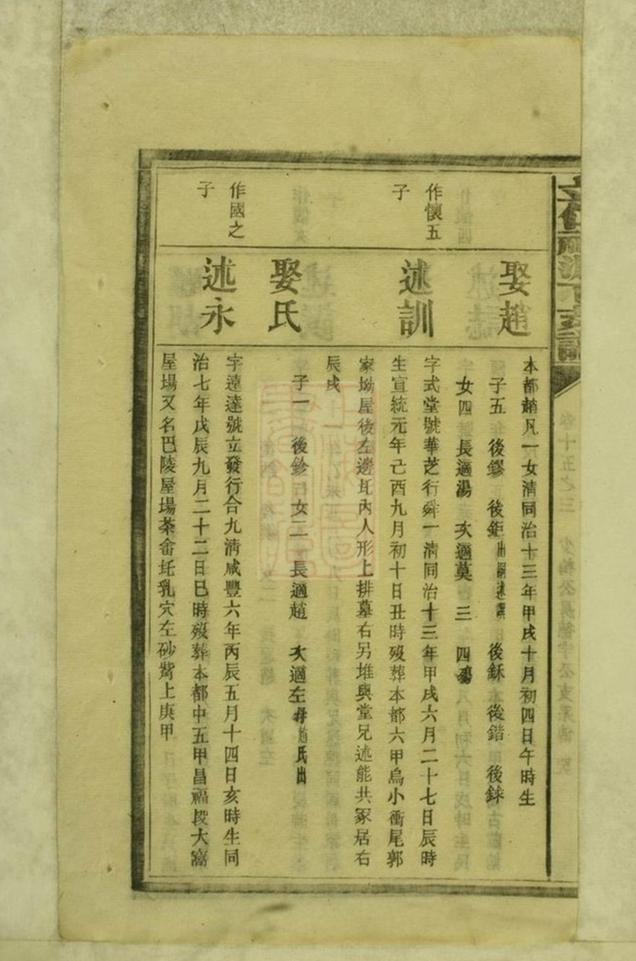 卷十五之三
娶趙
本都趙凡一女清同治十三年甲戌十月初四日午時生
子五 後鏐 後鉅出嗣述 後鉌 後鍇 後銇
女四 長適湯 次適莫 三 四殤
作懷五子
述訓
字式堂號華芝行舜一清同治十三年甲戌六月二十七日辰時
生宣統元年己酉九月初十日丑時歿葬本都六甲烏小衝尾郭
家坳屋後左邊瓦內人形上排墓右另堆與堂兄述能共冢居右
辰戌
娶氏
子一 後鉁 女二 長適趙 次適左 母趙氏出
作國之子
述永
字遠達號立發行合九清咸豐六年丙辰五月十四日亥時生同
治七年戊辰九月二十二日巳時歿葬本都中五甲昌福段大窩
屋場又名巴陵屋場茶畬坵乳穴左砂背上庚甲